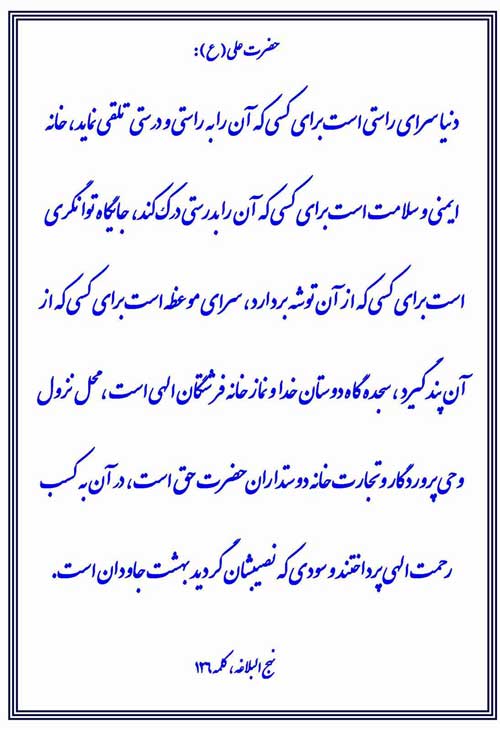 حضرت علی(ع):
دنیا سرای راستی است برای کسی که آن را به راستی و درستی تلقی نماید، خانه
ایمنی و سلامت است برای کسی که آن را بدرستی درک کند، جایگاه توانگری
است برای کسی که از آن توشه بردارد، سرای موعظه است برای کسی که از
آن پند گیرد، سجده گاه دوستان خدا و نماز خانه فرشتگان الهی است، محل نزول
وحی پروردگار و تجارت خانه دوستداران حضرت حق است، در آن به کسب
رحمت الهی پرداختند و سودی که نصیبشان گردید بهشت جاودان است.
نهج البلاغه، کلمه ۱۲۶